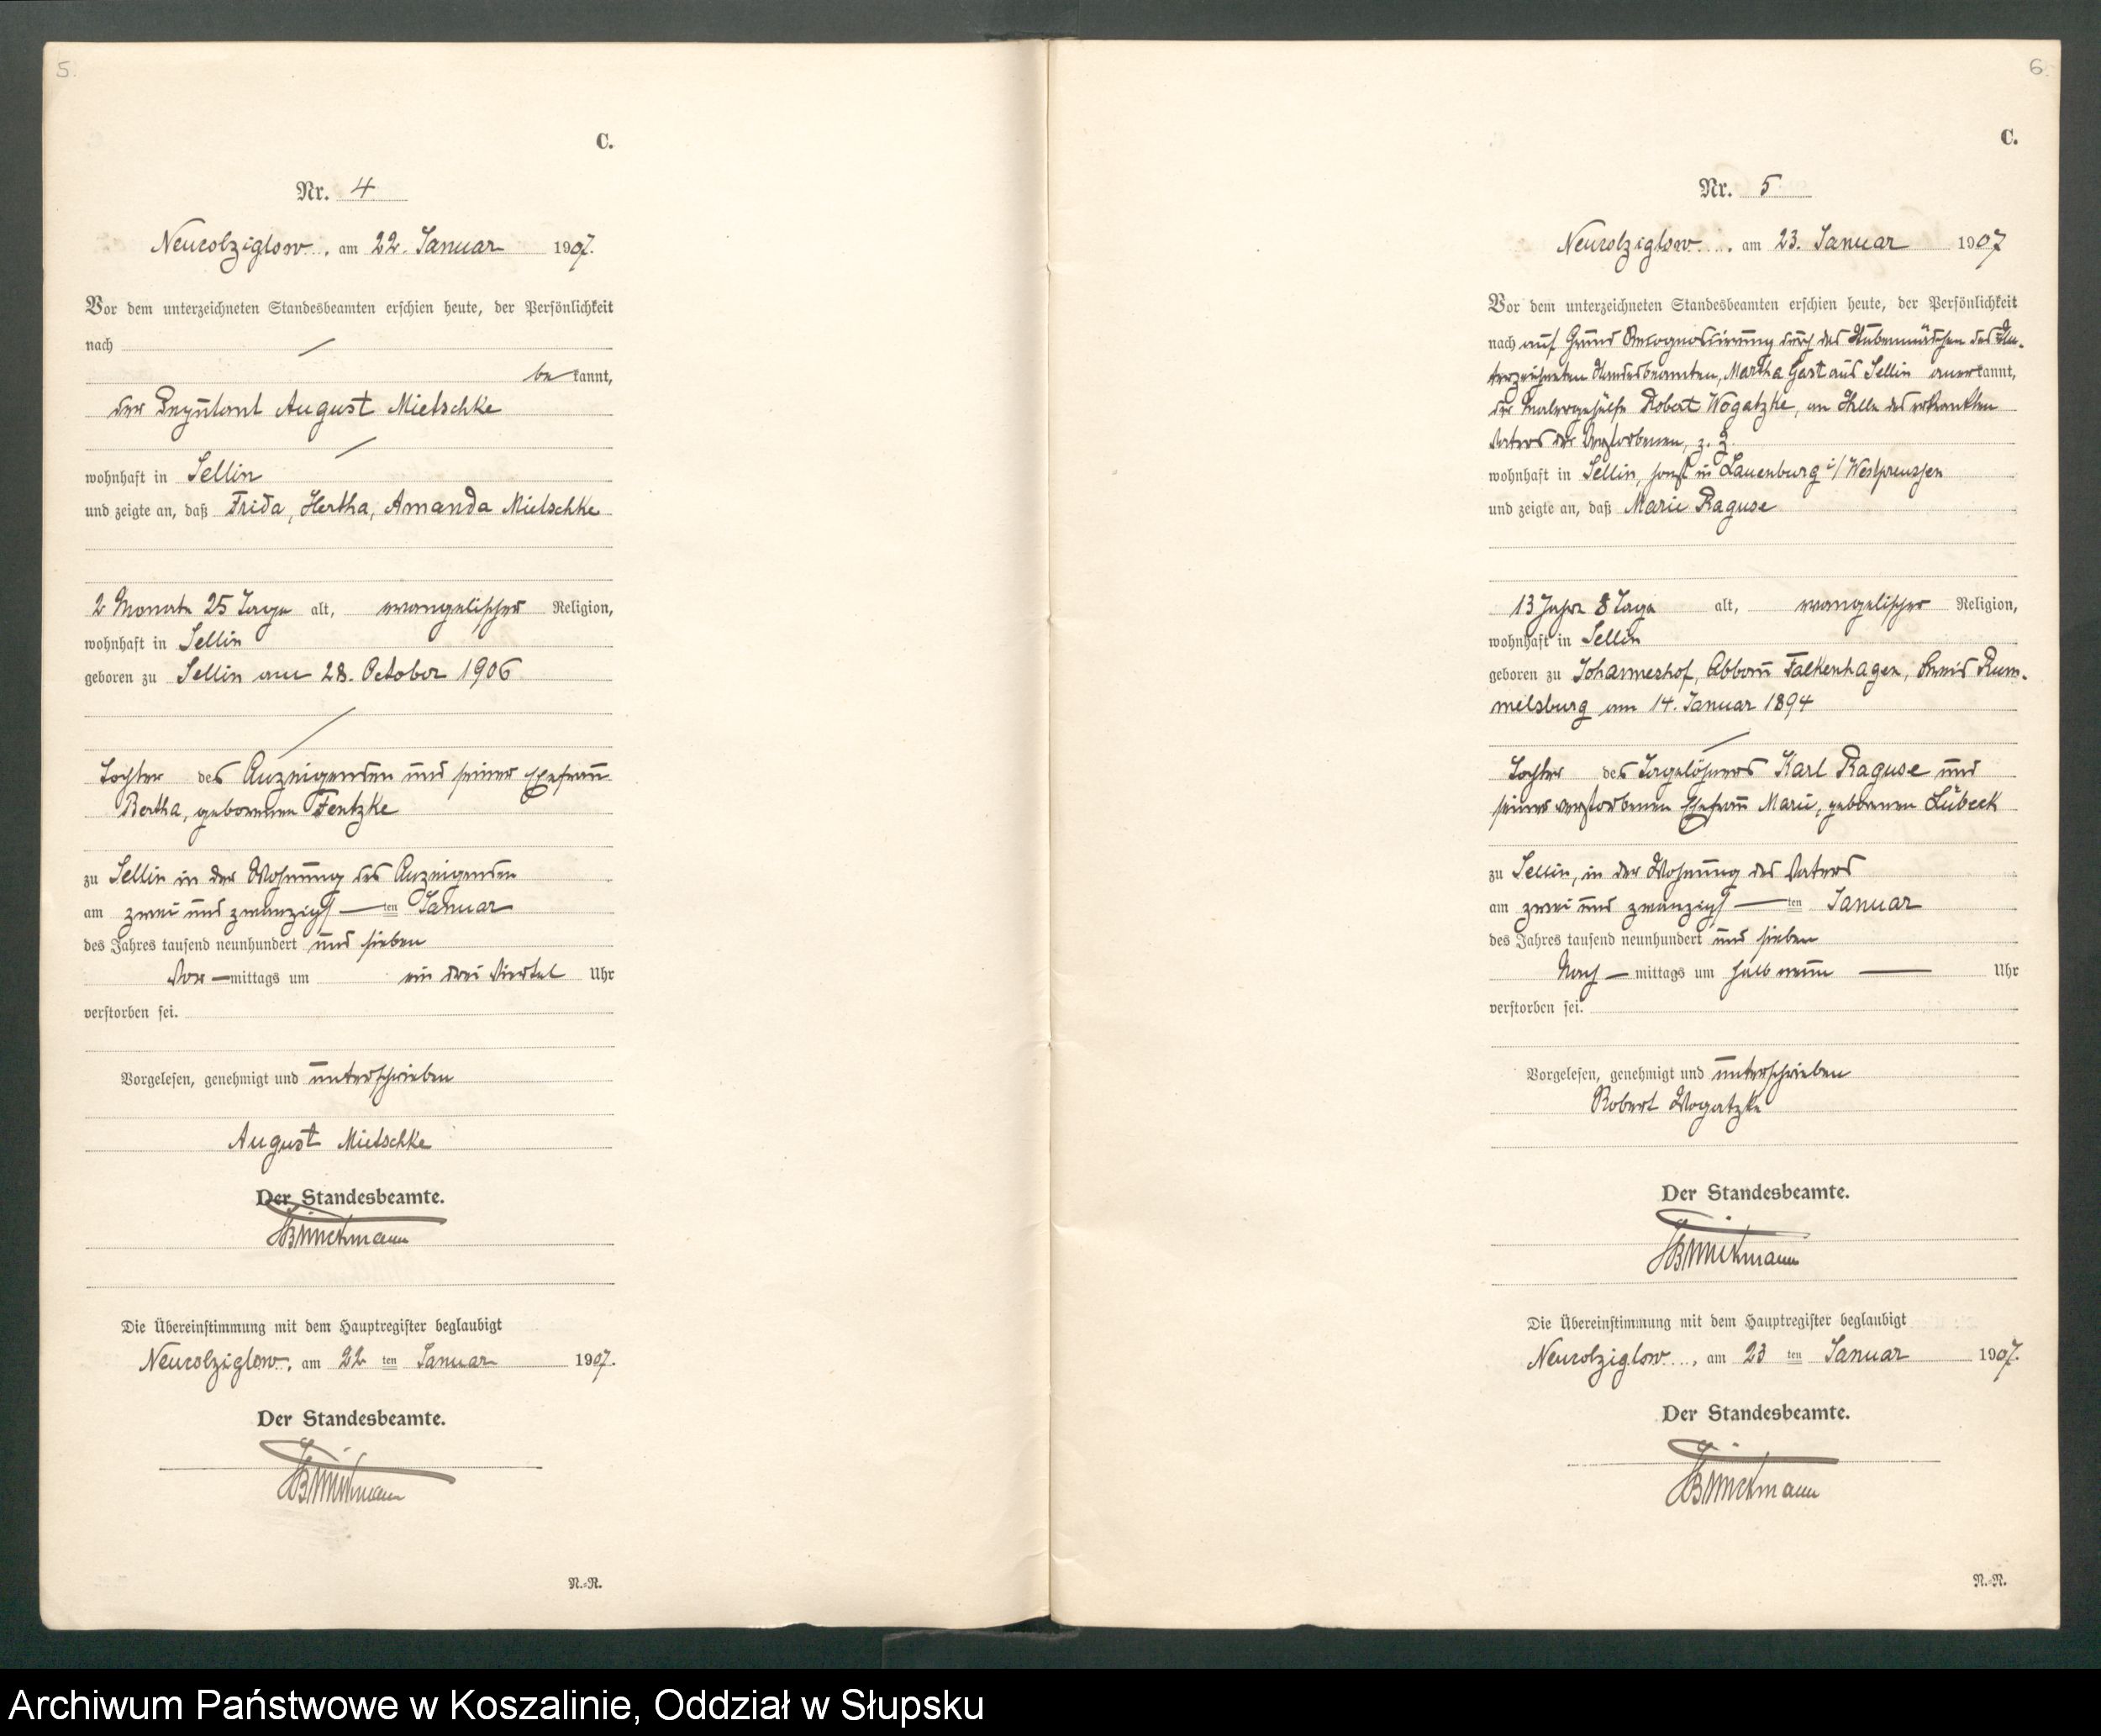 5.
C.
Nr. 4
Neukolziglow, am 22. Januar 1907.
Vor dem unterzeichneten Standesbeamten erschien heute, der Persönlichkeit
nach
be kannt,
der August Mietschke
wohnhaft in Sellin
und zeigte an, daß Frida, Hertha, Amanda Mietschke
2 Monate 25 Tage alt, evangelischer Religion,
wohnhaft in Sellin
geboren zu Sellin am 28. October 1906
Tochter des Anzeigenden und seiner Ehefrau
Bertha, geborenen Fentzke
zu Sellin in der Wohnung des Anzeigenden
am zwei und zwanzigst ten Januar
des Jahres tausend neunhundert und sieben
Vor mittags um ein drei Viertel Uhr
verstorben sei.
Vorgelesen, genehmigt und unterschrieben
August Mietschke
Der Standesbeamte.
Die Übereinstimmung mit dem Hauptregister beglaubigt
Neukolziglow, am 22 ten Januar 1907.
Der Standesbeamte.
N.-R.
6.
C.
Nr. 5
Neukolziglow, am 23. Januar 1907
Vor dem unterzeichneten Standesbeamten erschien heute, der Persönlichkeit
nach auf Grund Rekognoszierung durch das Stubenmädchen des Un-
terzeichneten Standesbeamten, Martha Gast aus Sellin anerkannt,
der Malergehülfe Robert Wogatzke, an Stelle des erkrankten
Vaters der Verstorbenen, z. Z.
wohnhaft in Sellin, sonst in Lauenburg i/ Westpreussen
und zeigte an, daß Marie Raguse
13 Jahre 8 Tage alt, evangelischer Religion,
wohnhaft in Sellin
geboren zu Johanneshof, Abbau Falkenhagen, Kreis Rum-
melsburg am 14. Januar 1894
Tochter des Tagelöhners Karl Raguse und
seiner verstorbenen Ehefrau Marie, geborenen Lübeck
zu Sellin, in der Wohnung des Vaters
am zwei und zwanzigst ten Januar
des Jahres tausend neunhundert und sieben
Nach mittags um halb neun Uhr
verstorben sei.
Vorgelesen, genehmigt und unterschrieben
Robert Wogatzke
Der Standesbeamte.
Die Übereinstimmung mit dem Hauptregister beglaubigt
Neukolziglow, am 23 ten Januar 1907.
Der Standesbeamte.
N.-R.
Archiwum Państwowe w Koszalinie, Oddział w Słupsku